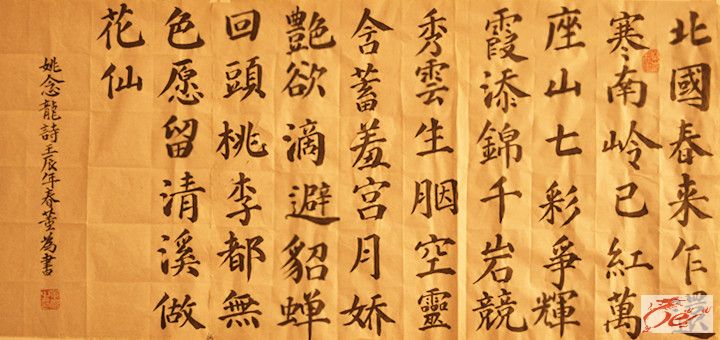 北國春来乍
寒南岭已紅萬
座山七彩爭輝
霞添錦千岩競
秀雲生胭空靈
含蓄羞宫月娇
艷欲滴避貂蝉
回頭桃李都無
色愿留清溪做
花仙
姚念龍詩壬辰年春董為書